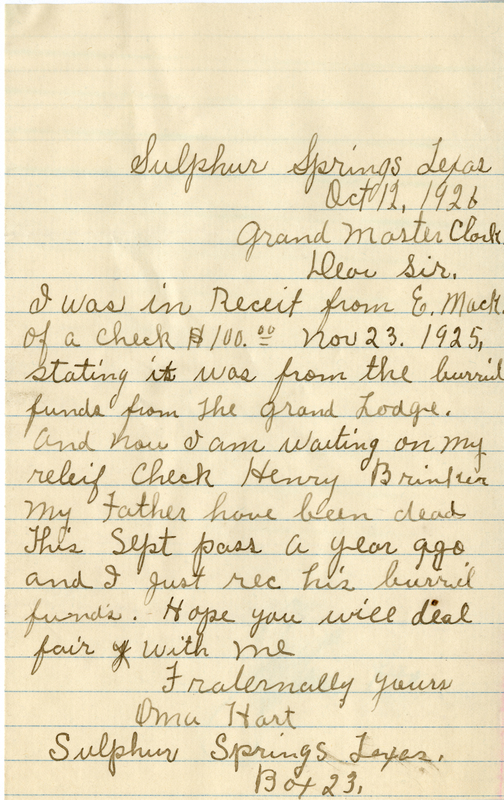 Sulphur Springs Texas
Oct 12, 1926
Grand Master Clark
Dear Sir.
I was in Receit from E. Mack.
of a check $100.00 Nov 23. 1925,
stating it was from the burril
funds from The Grand Lodge.
And now I am waiting on my
releif Check Henry Brinker
My Father have been dead
This Sept pass a year ago
and I Just rec his burril
funds. Hope you will deal
fair with me
Fraternally yours
Oma Hart
Sulphur Springs Texas.
Box 23.